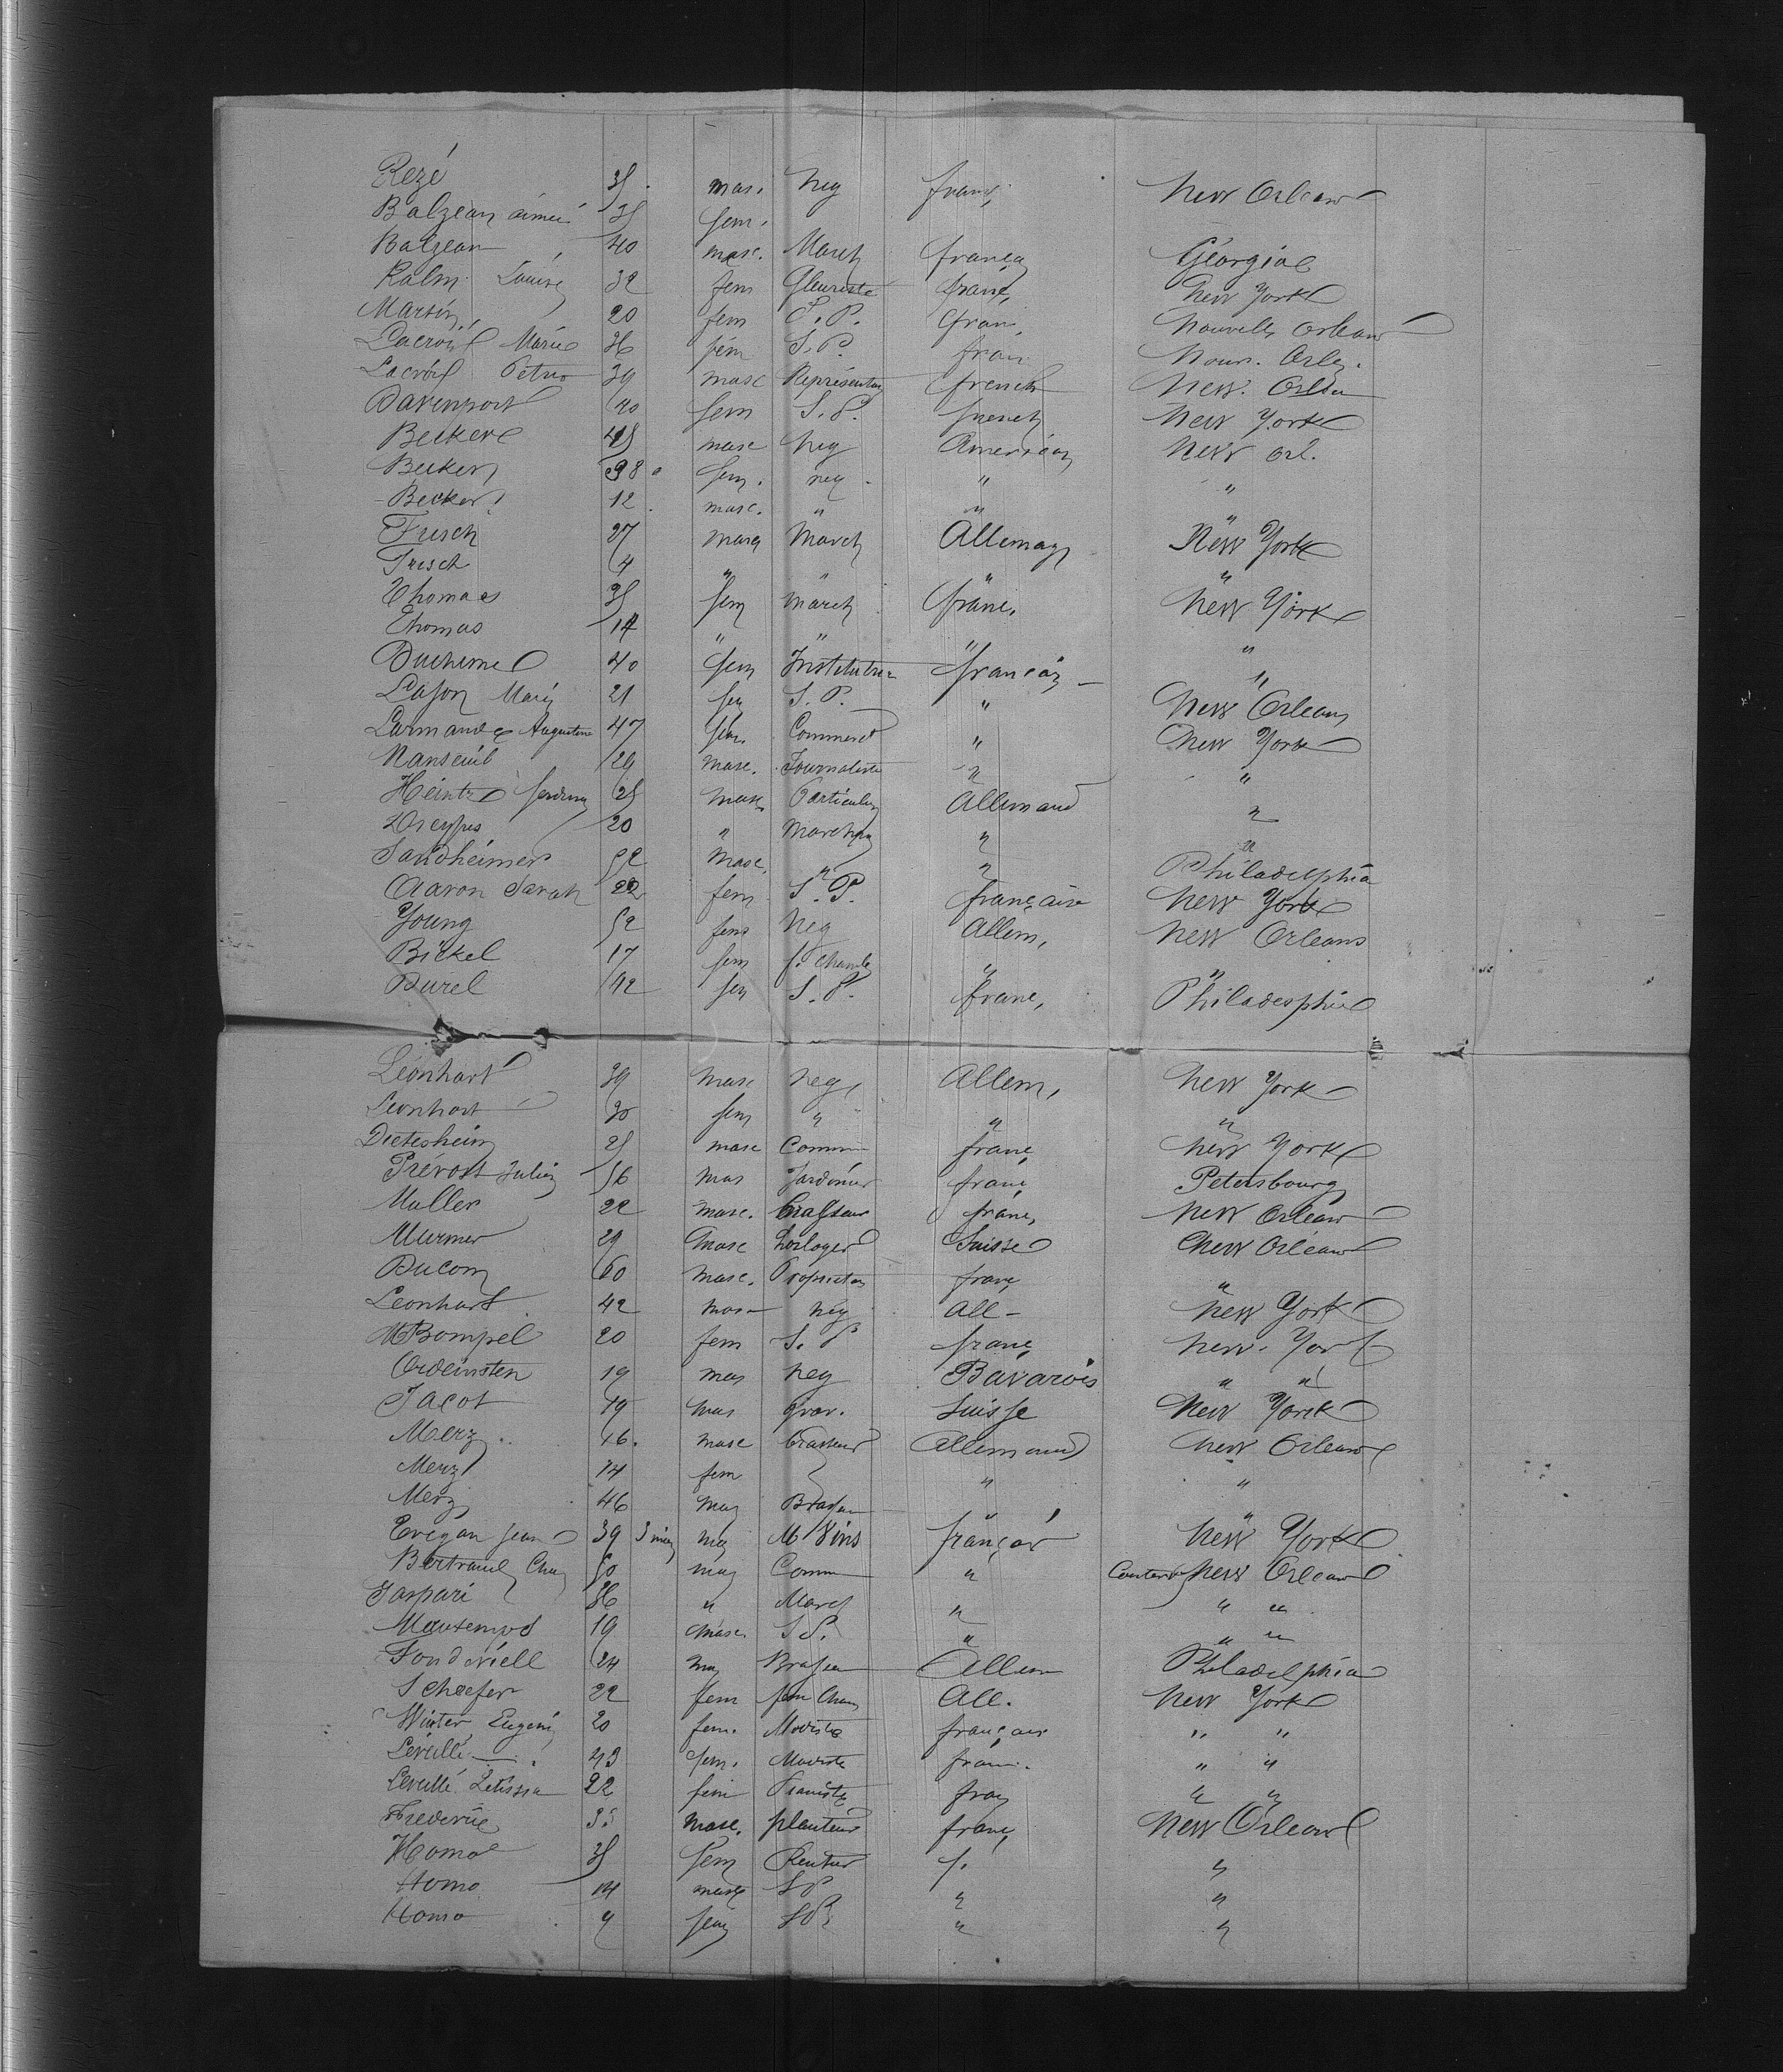 Rezé 35 mas. Neg franç. New Orleans
Balzeau aimée 35 fem.
Balzeau 40 masc. March français Géorgia
Kalm Louise 32 fem fleuriste franç, New York
Martin 20 fem S. P. fran. Nouvelle Orleans
Lacroix Marie 36 fém S. P. fran Nouv. Orle.
Lacroix 39 masc Représentan french New. Orlea
Davenport 40 fem S. P. french New York
Becker 45 masc Neg American New Orl.
Becker 38 fem. neg " "
Becker 12 masc. " " "
Frisch 27 masc March Allemag New York
Frisch 4 " " " "
Thomas 35 fem march franc. New York
Thomas 14 " " " "
Duchemel 40 fem Institutrice français "
Lason Marie 21 fem S. P. " New Orleans
Larmande Augustine 47 fem. Commerce " New York
Nanseuil 29 masc. Journaliste " "
Heintz 25 masc Particulier Allemand "
Dreyfus 20 " Marchan " "
Sandheimer 52 Masc. " " Philadelphia
Aaron Sarah 22 fem S. P. française New York
Young 52 fem Neg Allem, New Orleans
Bickel 17 fem f. chamb " "
Durel 42 fem S. P. franc, Philadesphie
Léonhart 39 masc neg, Allem, New York
Leonhart 30 fem " " "
Dietesheim 25 masc Comm franç New York
Prévost Julien 56 mas Jardinier franç Petersbourg
Muller 22 masc. brasseur franc, New Orleans
Murmer 29 masc horloger Suisse New Orleans
Ducom 60 masc. Proprietai franç "
Leonhart 42 mas neg All- New York
Bompel 20 fem S. P franç New. York
Ordeinsten 19 mas neg Bavarois " "
Jacot 19 mas grav. Suisse New York
Merz 16. masc brasseur Allemand New Orleans
Merz 14 fem " "
Merz 46 mas Brasseu " "
Evegan Jean 39 mas M Vins français New York
Bertrand 50 mas Comm " New Orleans
Gaspari 36 " March " " "
Mautemps 19 masc. S P. " " "
Fondviell 24 mas Brasseu Allem Philadelphia
Schaefer 22 fem fem Cham All. New York
Winter Eugenie 20 fem. Modiste français " "
Léveillé 43 fem. Modiste fran. " "
Leveillé Letissia 22 fem Pianiste fran " "
Frederic 35 masc. planteur franç New Orleans
Homo 35 fem Rentier f. "
Homo 14 masc SP " "
Homo 9 fem SP " "